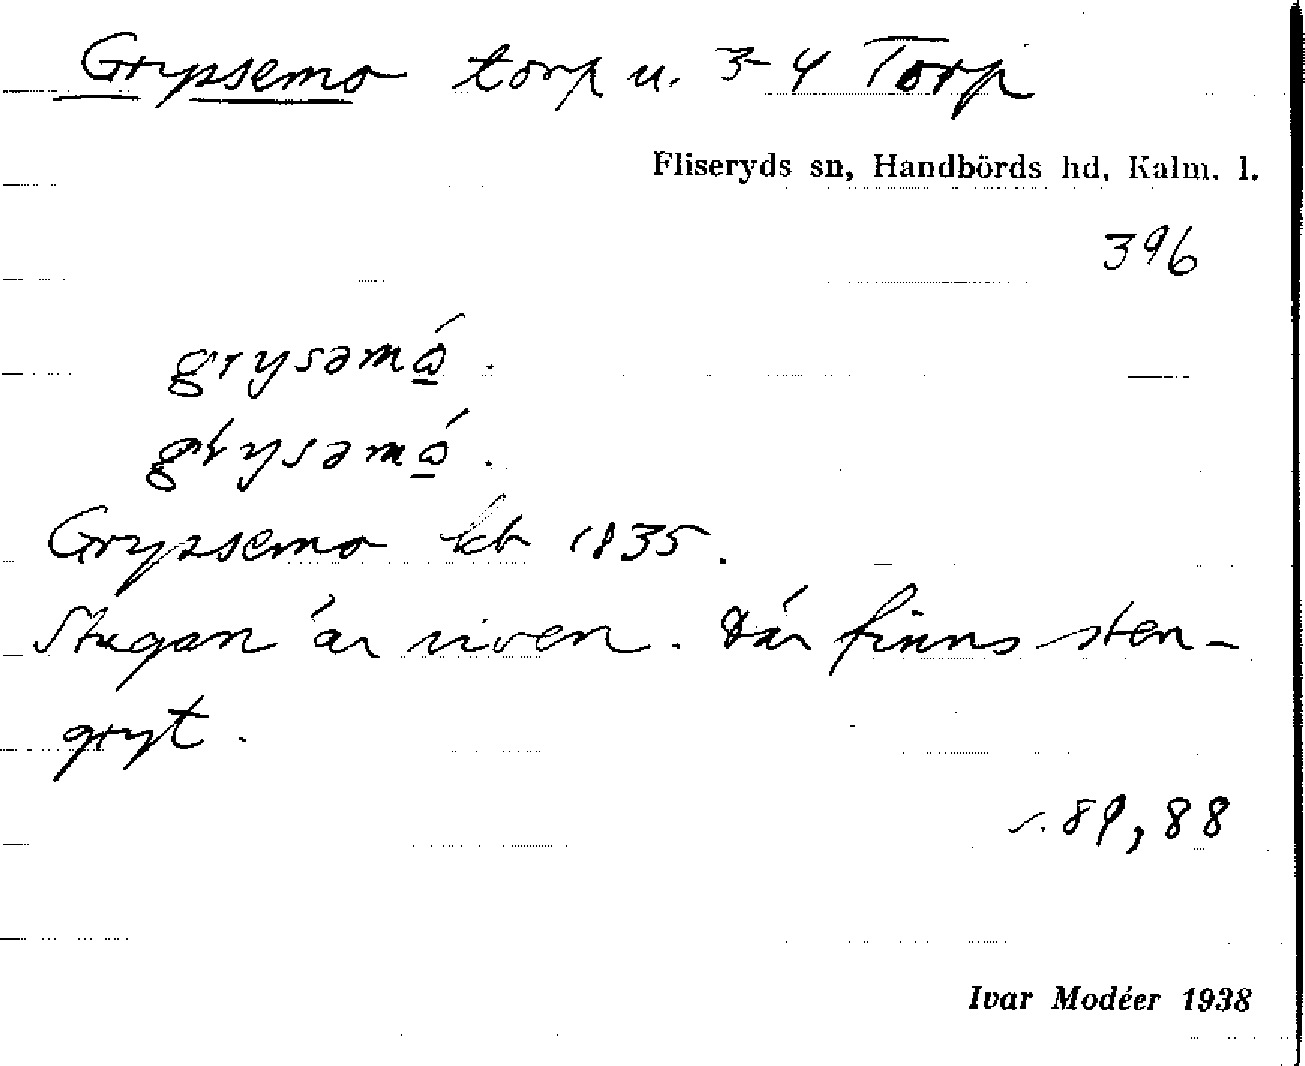 Grypsemo torp u. 3-4 Torp
Fliseryds sn, Handbörds hd, Kalm. l.
396
grysəmó̱.
grysəmó̱.
Grypsemo kb 1835.
Stugan är riven. Där finns sten-
gryt.
s. 89, 88
Ivar Modéer 1938